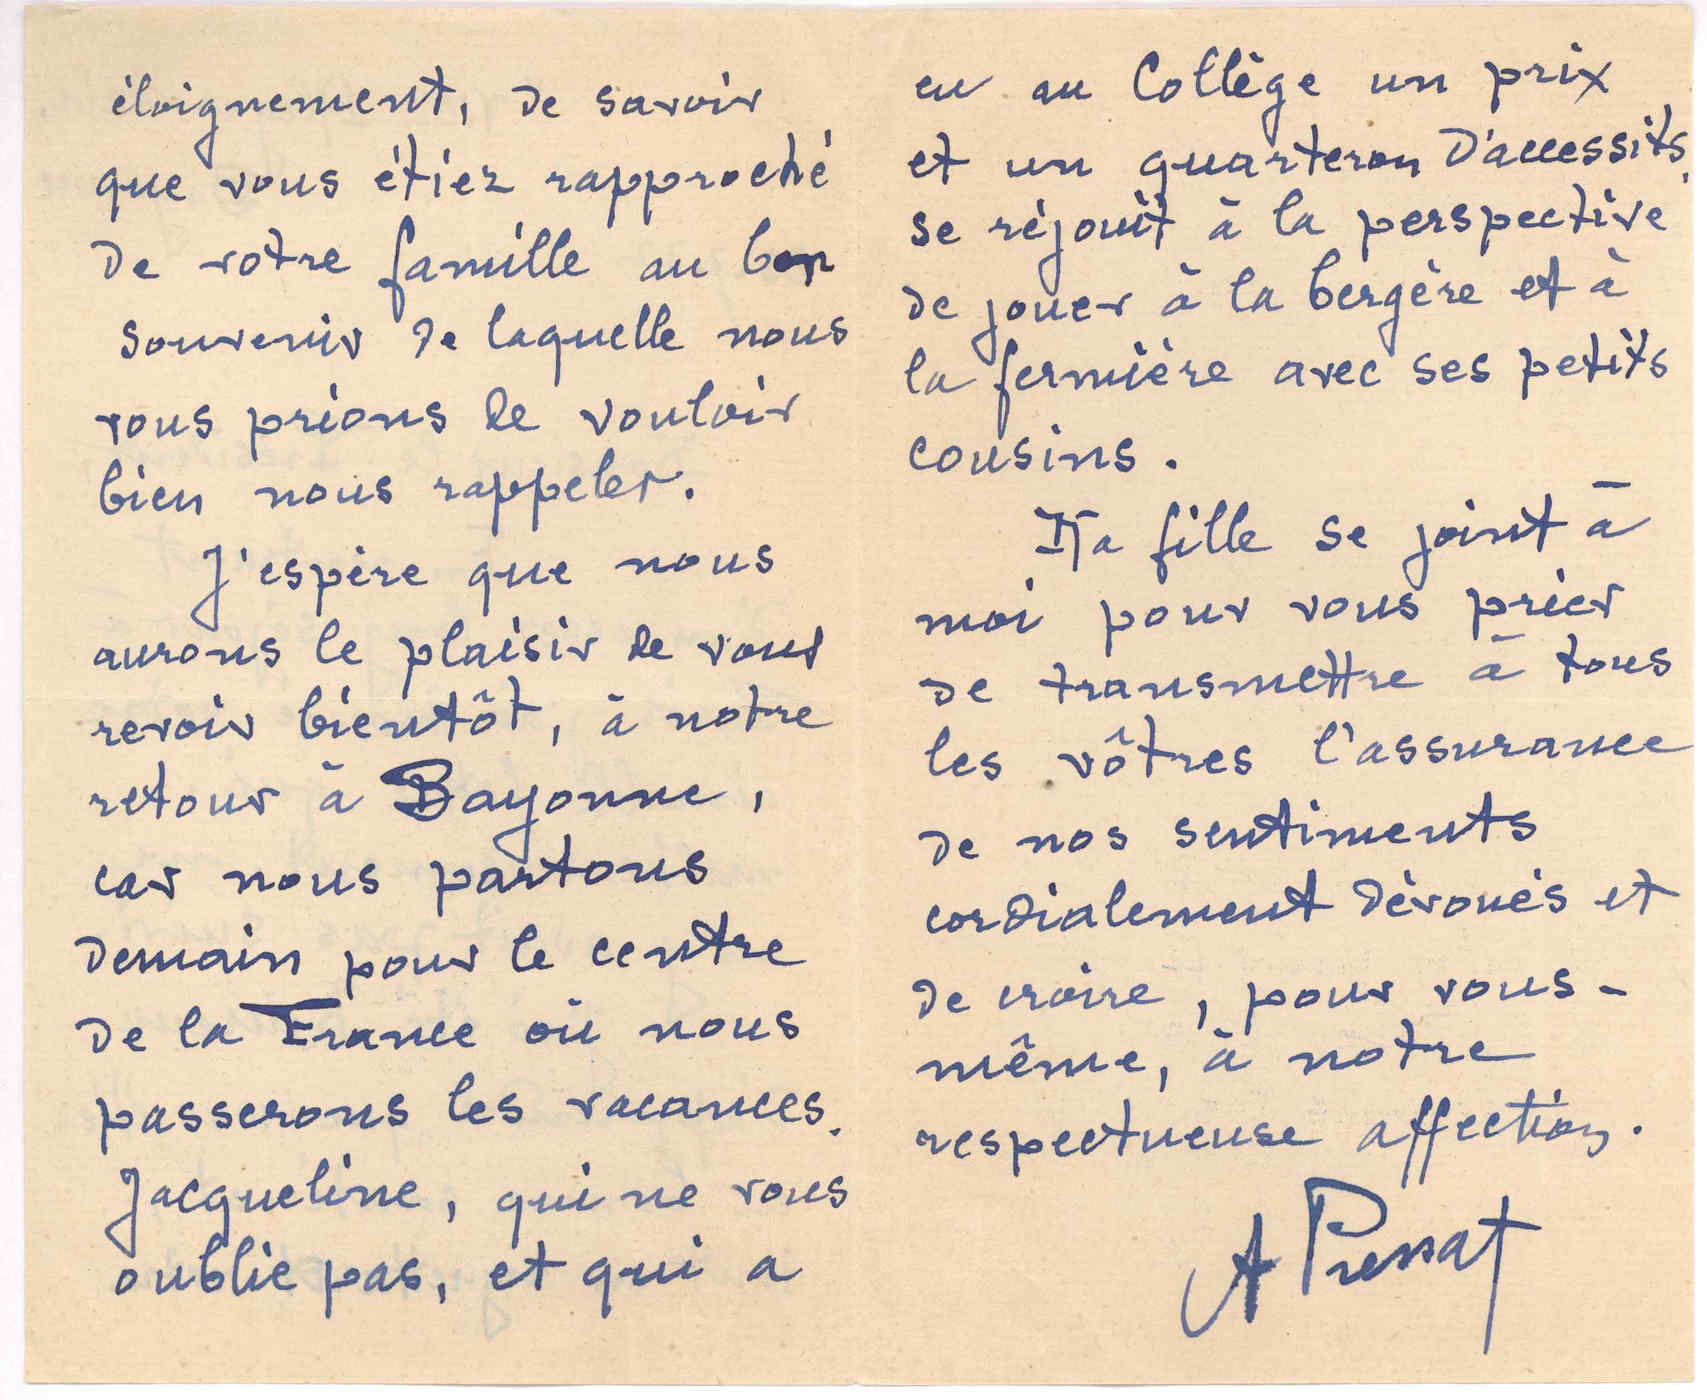 éloignement, de savoir
que vous étiez rapproché
de votre famille au bon
souvenir de laquelle nous
vous prions de vouloir
bien nous rappeler.
J'espère que nous
aurons le plaisir de vous
revoir bientôt, à notre
retour à Bayonne,
car nous partons
demain pour le centre
de la France où nous
passerons les vacances.
Jacqueline, qui ne vous
oublie pas, et qui a
eu au Collège un prix
et un quarteron d'accessits,
se réjouit à la perspective
de jouer à la bergère et à
la fermière avec ses petits
cousins.
Ma fille se joint à
moi pour vous prier
de transmettre à tous
les vôtres l'assurance
de nos sentiments
cordialement dévoués et
de croire, pour vous-
même, à notre
respectueuse affection.
A